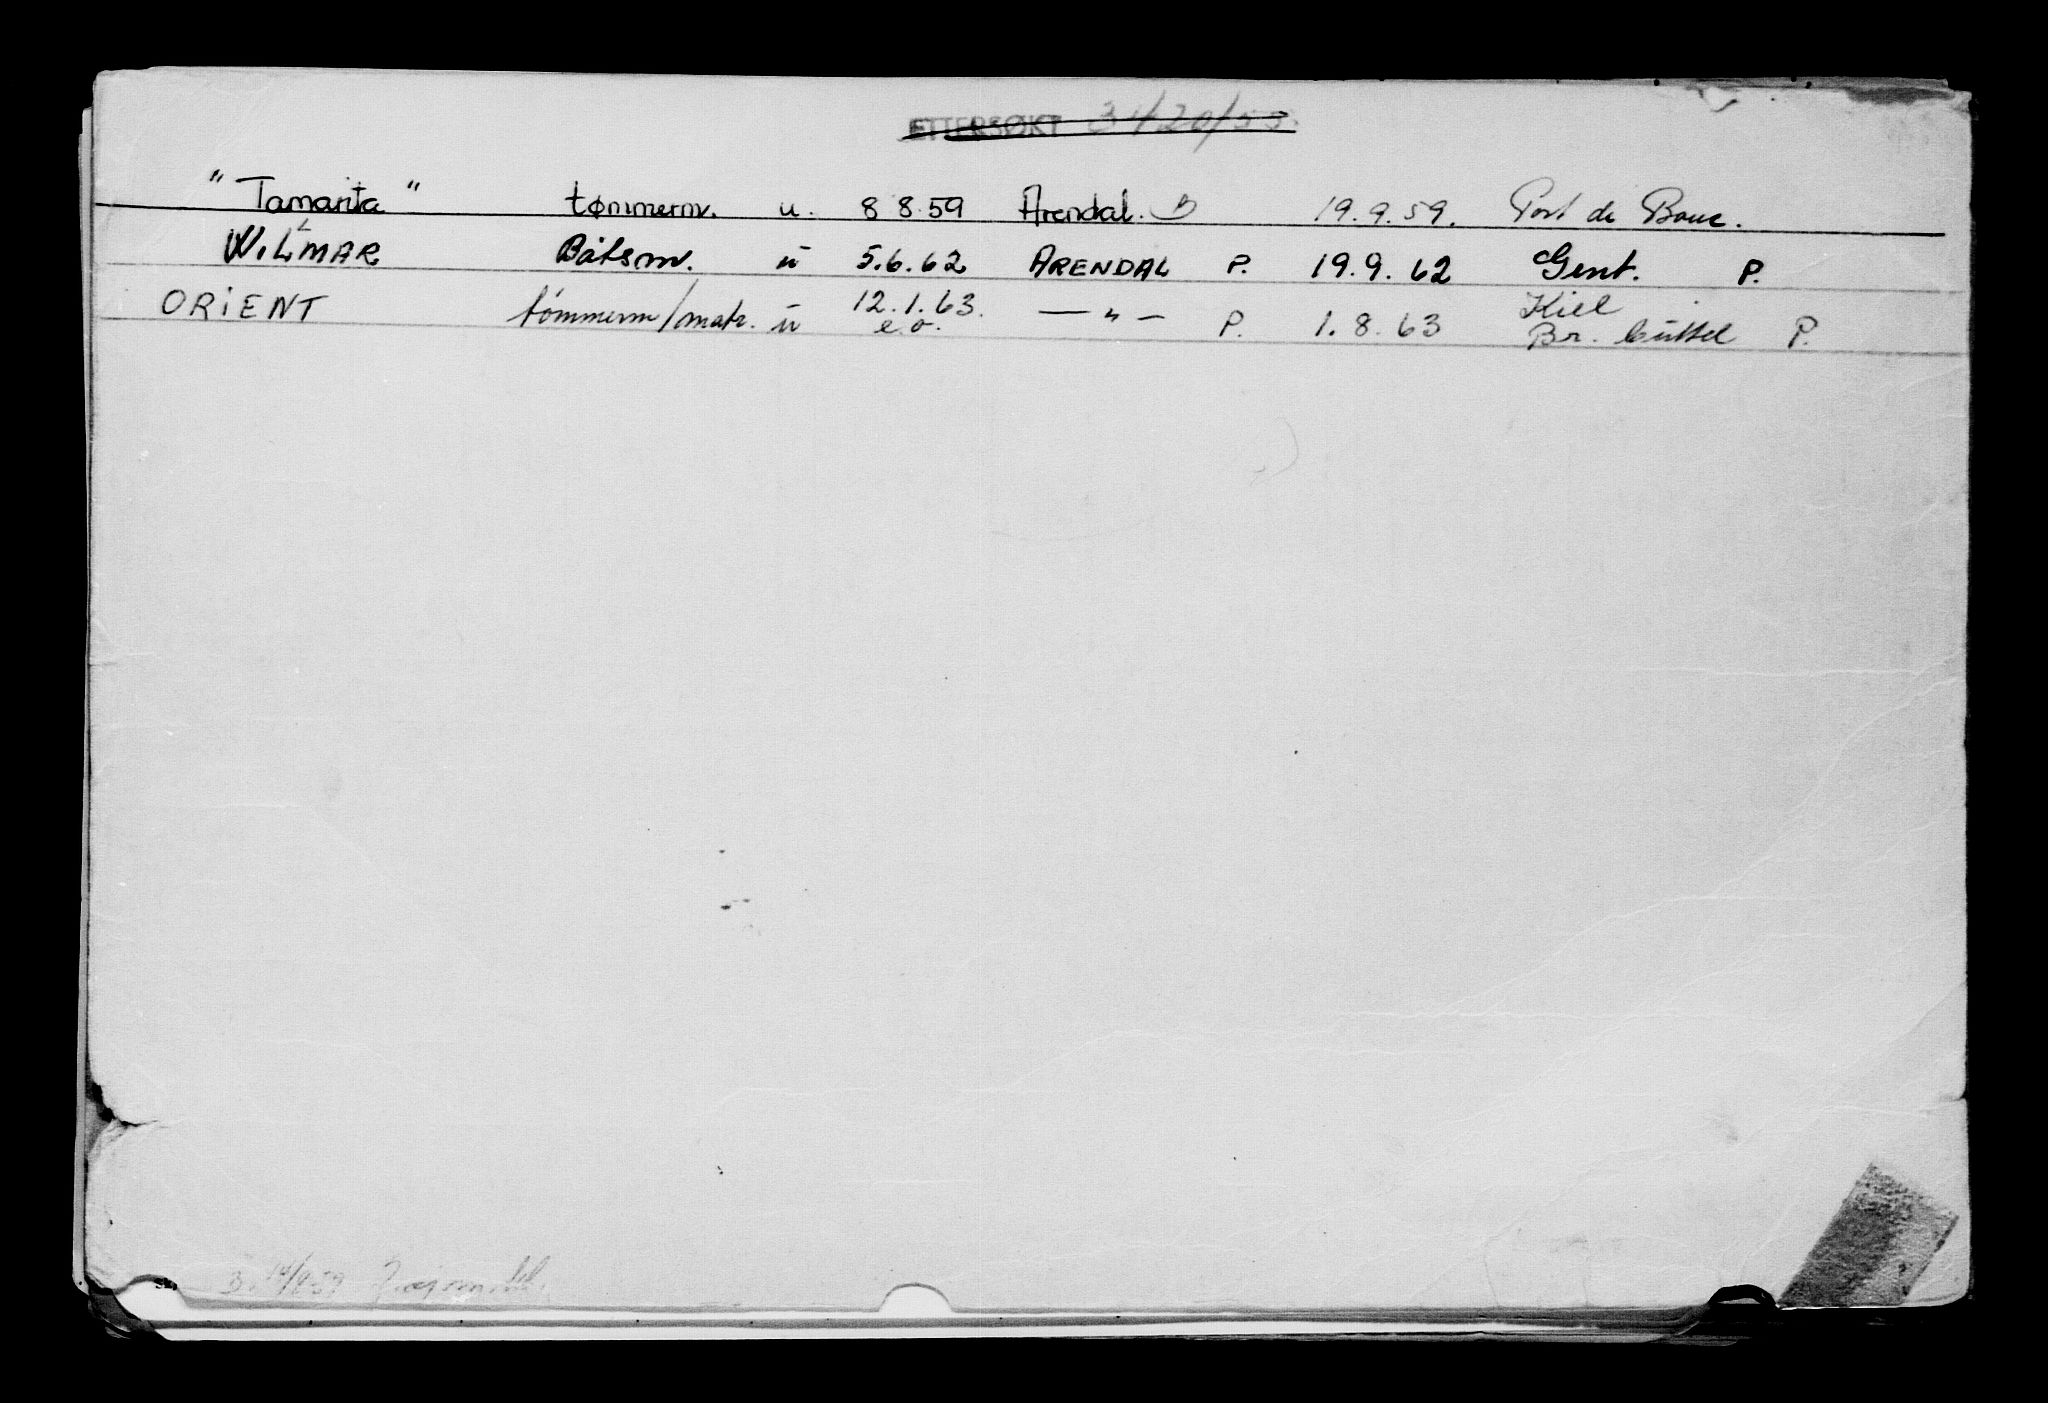 ETTERSØKT 3420/55
"Tamarita" tømmerm. u. 8 8.59 Arendal. B 19.9.59. Port de Bouc.
WILMAR Båtsm. u 5.6.62 ARENDAL P. 19.9.62 Gent. P.
ORIENT tømmerm/matr. u 12.1.63. e.o. — " — P. 1.8.63 Kiel Br. büttel P.